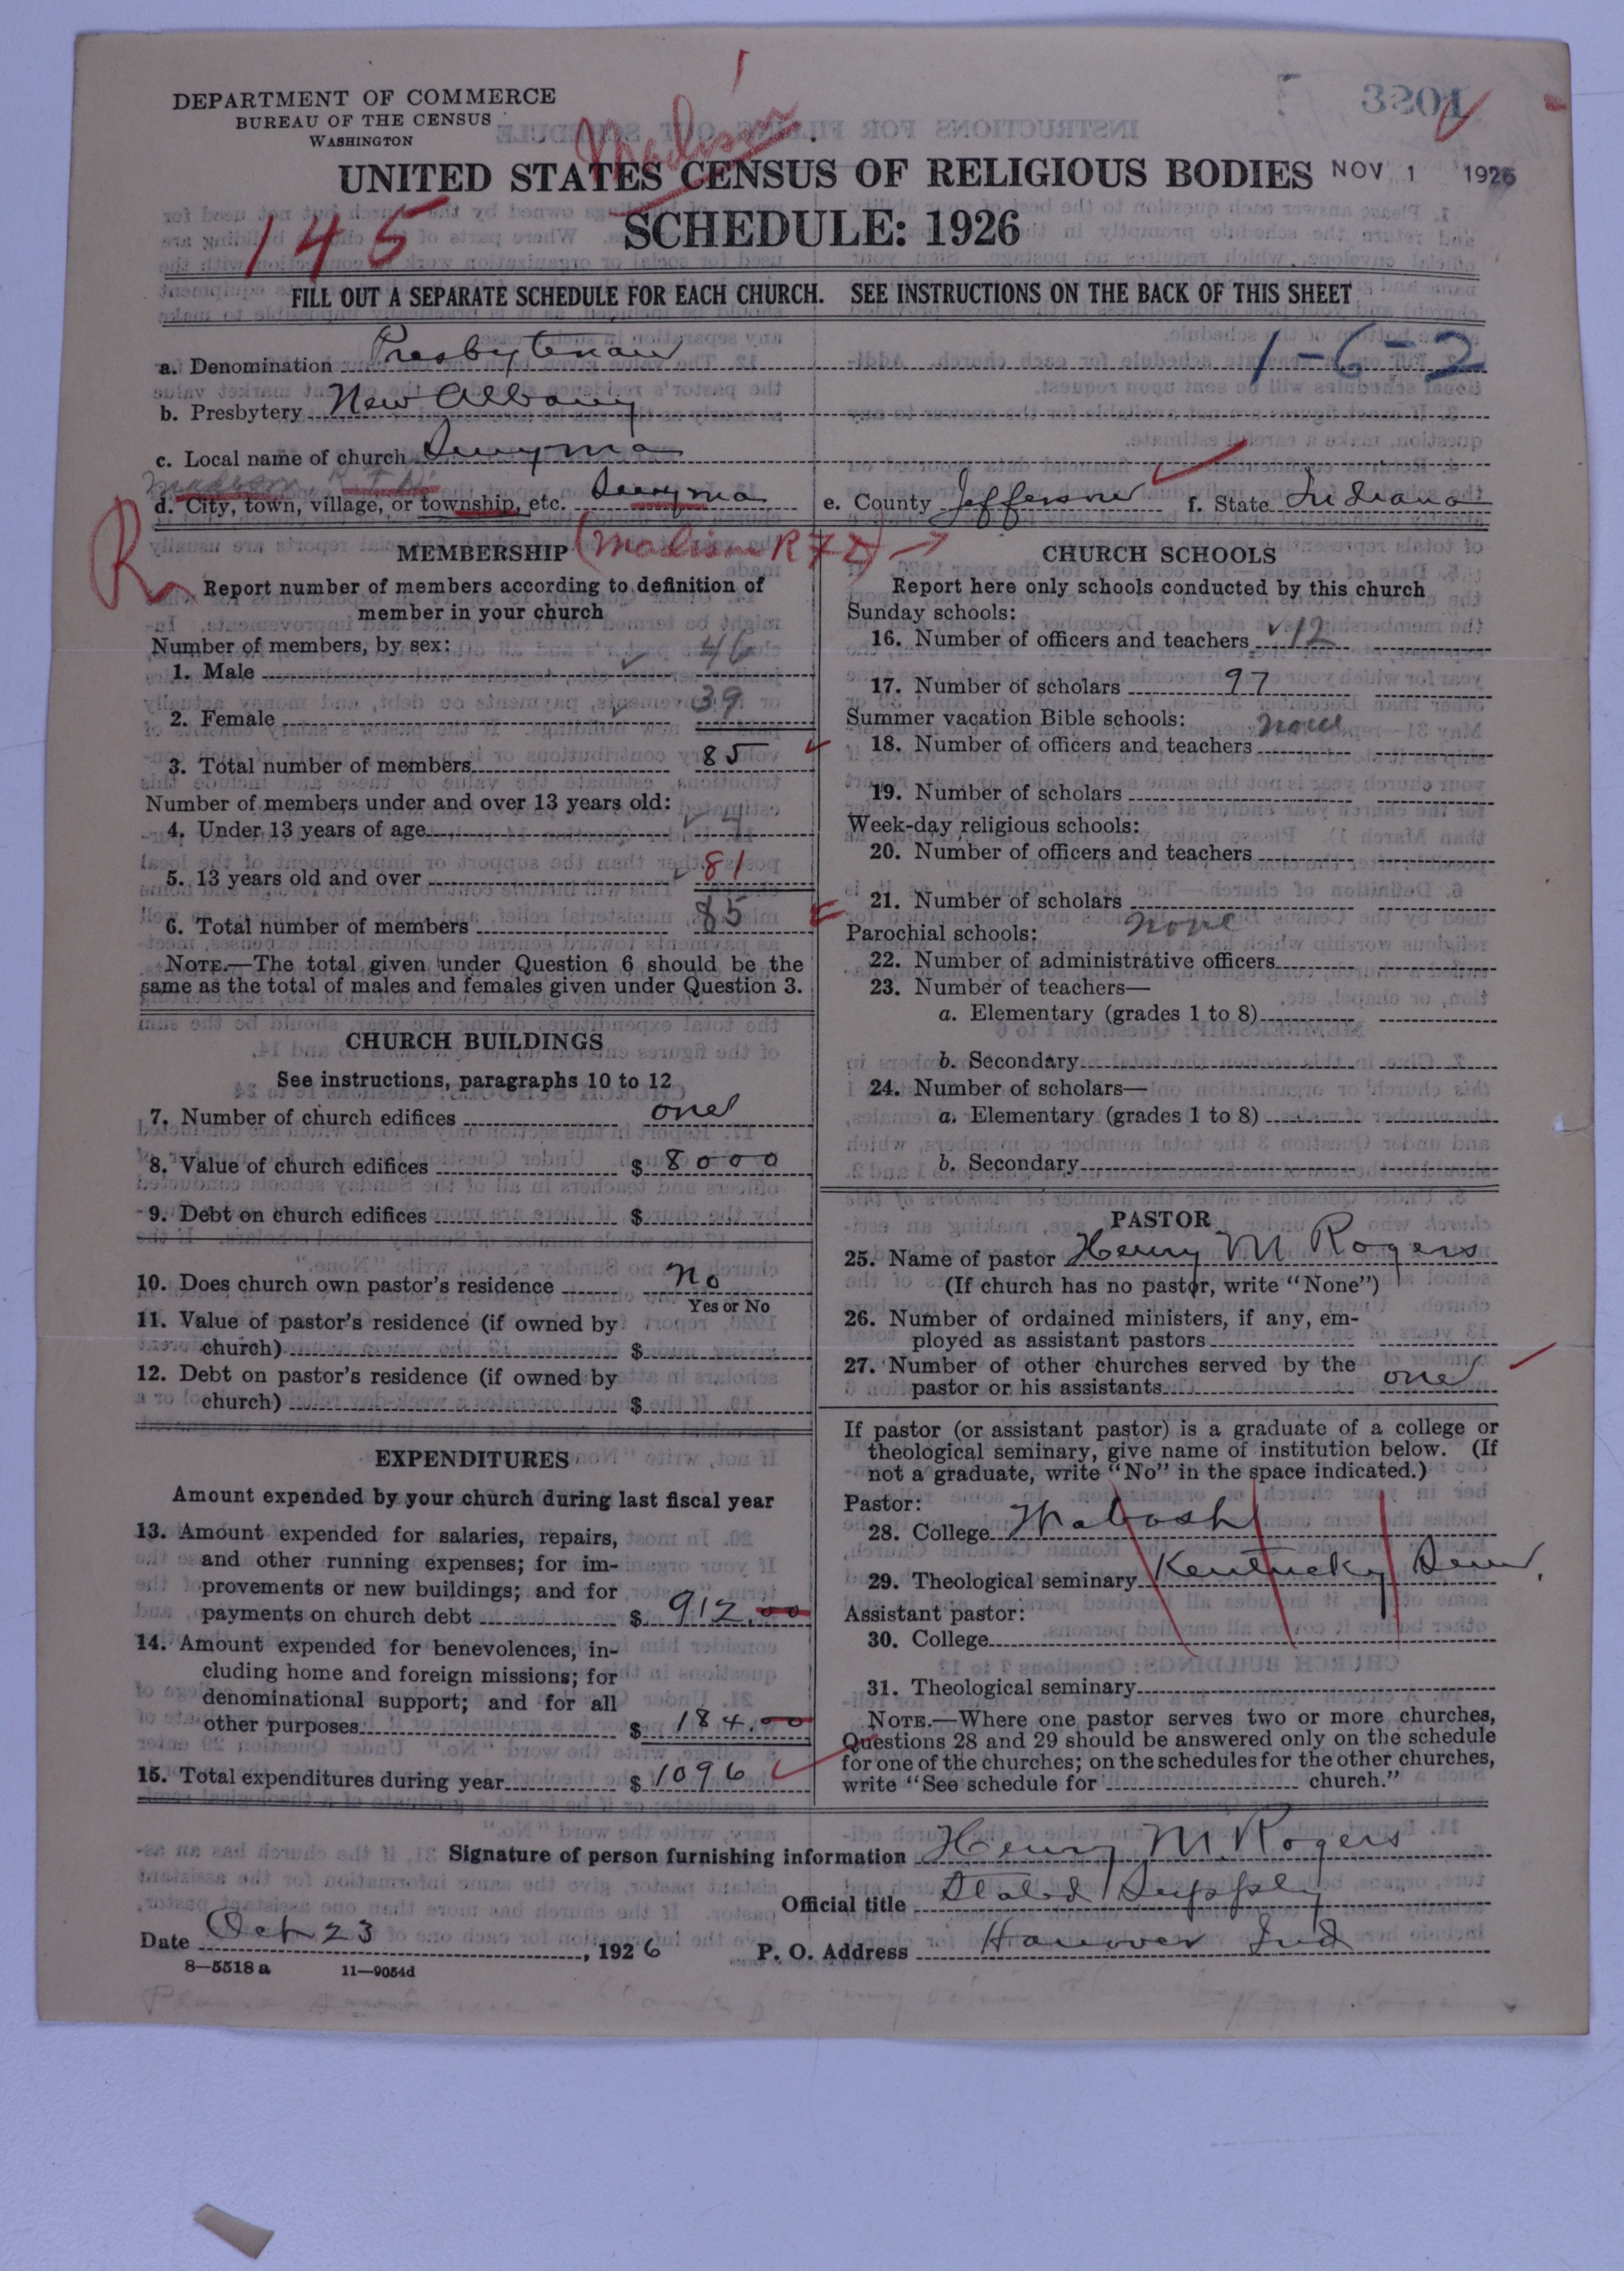 DEPARTMENT OF COMMERCE
BUREAU OF THE CENSUS
WASHINGTON
Madison
3201
UNITED STATES CENSUS OF RELIGIOUS BODIES NOV 1 1926
145
SCHEDULE: 1926
FILL OUT A SEPARATE SCHEDULE FOR EACH CHURCH. SEE INSTRUCTIONS ON THE BACK OF THIS SHEET
a. Denomination Presbyterian
1-6-2
b. Presbytery New Albany
c. Local name of church
Madison, R F D
d. City, town, village, or township, etc. e. County Jefferson f. State Indiana
R
MEMBERSHIP (Madison R F D)
Report number of members according to definition of
member in your church
Number of members, by sex:
1. Male 46
2. Female 39
3. Total number of members 85
Number of members under and over 13 years old:
4. Under 13 years of age 4
5. 13 years old and over 81
6. Total number of members 85
NOTE.—The total given under Question 6 should be the
same as the total of males and females given under Question 3.
CHURCH BUILDINGS
See instructions, paragraphs 10 to 12
7. Number of church edifices one
8. Value of church edifices $ 8000
9. Debt on church edifices $
10. Does church own pastor's residence No
Yes or No
11. Value of pastor's residence (if owned by
church) $
12. Debt on pastor's residence (if owned by
church) $
EXPENDITURES
Amount expended by your church during last fiscal year
13. Amount expended for salaries, repairs,
and other running expenses; for im-
provements or new buildings; and for
payments on church debt $ 912.00
14. Amount expended for benevolences, in-
cluding home and foreign missions; for
denominational support; and for all
other purposes $ 184.00
15. Total expenditures during year $ 1096
CHURCH SCHOOLS
Report here only schools conducted by this church
Sunday schools:
16. Number of officers and teachers 12
17. Number of scholars 97
Summer vacation Bible schools: none
18. Number of officers and teachers
19. Number of scholars
Week-day religious schools:
20. Number of officers and teachers
21. Number of scholars
Parochial schools: none
22. Number of administrative officers
23. Number of teachers—
a. Elementary (grades 1 to 8)
b. Secondary
24. Number of scholars—
a. Elementary (grades 1 to 8)
b. Secondary
PASTOR
25. Name of pastor Henry M Rogers
(If church has no pastor, write "None")
26. Number of ordained ministers, if any, em-
ployed as assistant pastors
27. Number of other churches served by the
pastor or his assistants one
If pastor (or assistant pastor) is a graduate of a college or
theological seminary, give name of institution below. (If
not a graduate, write "No" in the space indicated.)
Pastor:
28. College Wabash
29. Theological seminary Kentucky Sem.
Assistant pastor:
30. College
31. Theological seminary
NOTE.—Where one pastor serves two or more churches,
Questions 28 and 29 should be answered only on the schedule
for one of the churches; on the schedules for the other churches,
write "See schedule for church."
Signature of person furnishing information Henry M. Rogers
Official title Stated Supply
Date Oct 23, 1926 P. O. Address Hanover Ind
8—5518a 11—9054d